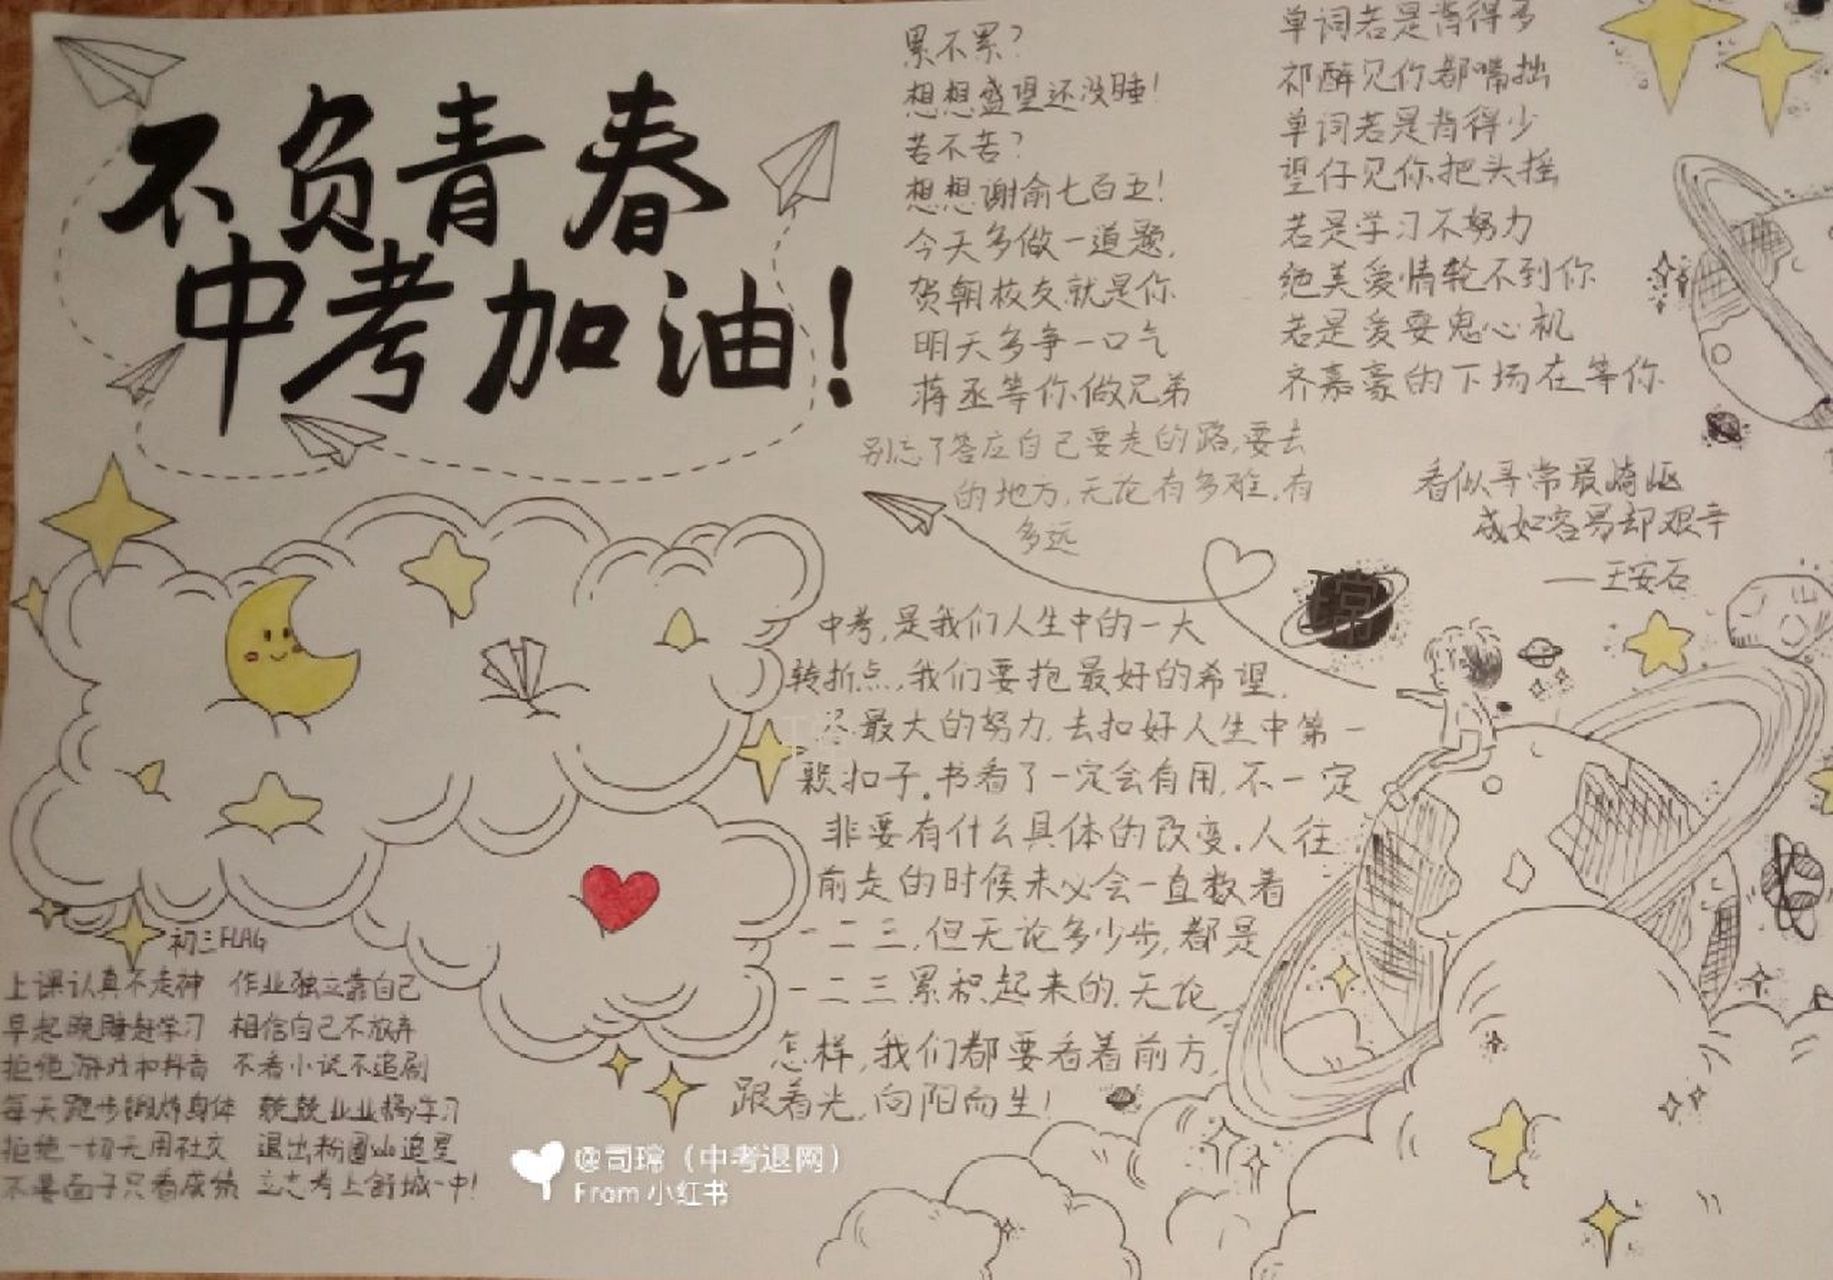 不负青春
中考加油!
累不累?
想想盛望还没睡!
苦不苦?
想想谢俞七百五!
今天多做一道题,
贺朝校友就是你
明天多争一口气
蒋丞等你做兄弟
单词若是背得多
祁醉见你都嘴拙
单词若是背得少
望仔见你把头摇
若是学习不努力
绝美爱情轮不到你
若是爱耍鬼心机
齐嘉豪的下场在等你
别忘了答应自己要走的路,要去
的地方,无论有多难,有
多远
看似寻常最崎岖
成如容易却艰辛
——王安石
琮
中考,是我们人生中的一大
转折点,我们要抱最好的希望,
尽最大的努力,去扣好人生中第一
颗扣子。书看了一定会有用,不一定
非要有什么具体的改变.人往
前走的时候未必会一直数着
一二三,但无论多少步,都是
一二三累积起来的,无论
怎样,我们都要看着前方,
跟着光,向阳而生!
初三FLAG
上课认真不走神 作业独立靠自己
早起晚睡赶学习 相信自己不放弃
拒绝游戏和抖音 不看小说不追剧
每天跑步锻炼身体 兢兢业业搞学习
拒绝一切无用社交 退出粉圈追星
不要面子只看成绩 立志考上舒城一中!
@司琮（中考退网）
From 小红书